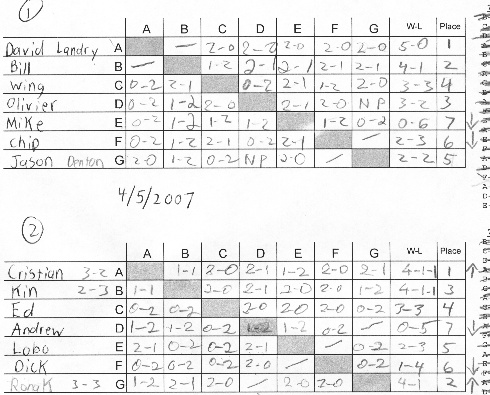 1
A B C D E F G W-L Place
David Landry A — 2-0 2-0 2-0 2-0 2-0 5-0 1
Bill B — 1-2 2-1 2-1 2-1 2-1 4-1 2
Wing C 0-2 2-1 0-2 2-1 1-2 2-0 3-3 4
Olivier D 0-2 1-2 2-0 2-1 2-0 NP 3-2 3
Mike E 0-2 1-2 1-2 1-2 1-2 0-2 0-6 7 ↓
Chip F 0-2 1-2 2-1 0-2 2-1 / 2-3 6 ↓
Jason Denton G 2-0 1-2 0-2 NP 2-0 / 2-2 5
4/5/2007
2
A B C D E F G W-L Place
Cristian 3-2 A 1-1 2-0 2-1 1-2 2-0 2-1 4-1-1 1 ↑
Kin 2-3 B 1-1 2-0 2-1 2-0 2-0 1-2 4-1-1 3
Ed C 0-2 0-2 2-0 2-0 2-0 0-2 3-3 4
Andrew D 1-2 1-2 0-2 1-2 0-2 / 0-5 7 ↓
Lobo E 2-1 0-2 0-2 2-1 / 0-2 2-3 5
Dick F 0-2 0-2 0-2 2-0 / 0-2 1-4 6 ↓
RonaK 3-3 G 1-2 2-1 2-0 / 2-0 2-0 4-1 2 ↑